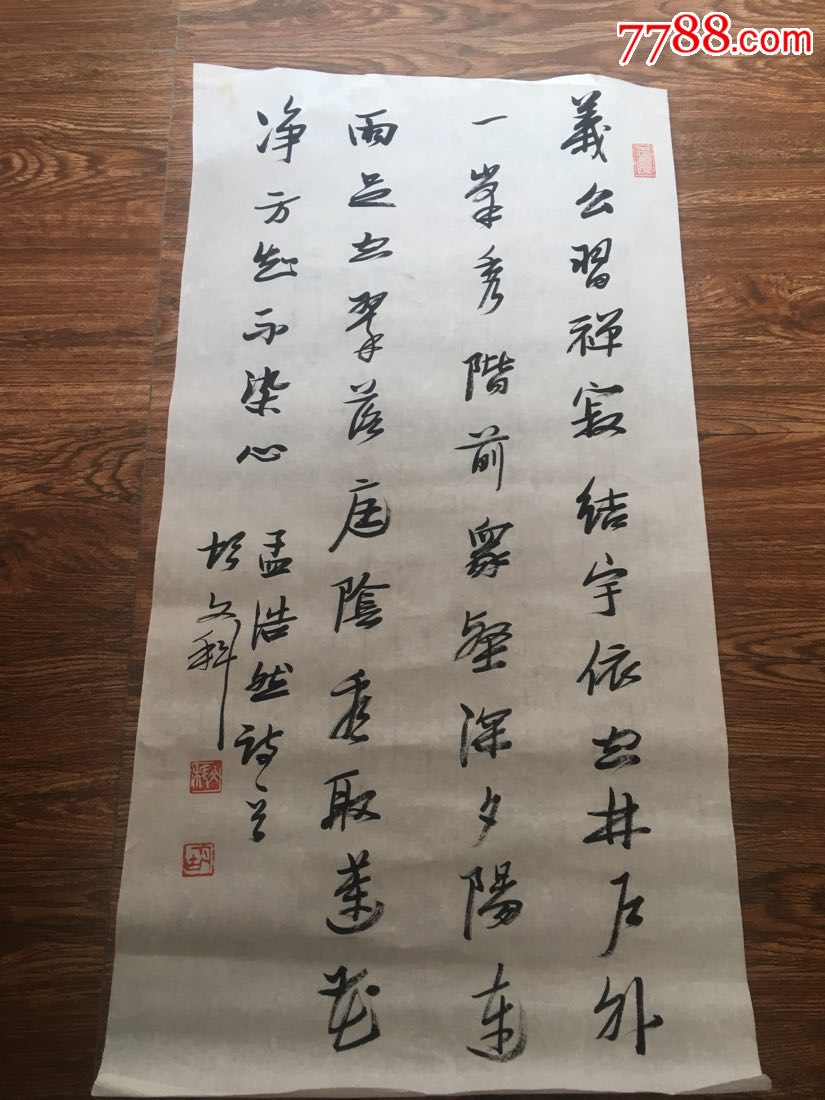 7788.com
義公習禅寂結宇依空林户外
一峯秀階前衆壑深夕陽連
雨足空翠落庭陰看取蓮花
净方知不染心
孟浩然詩一首
胡文科